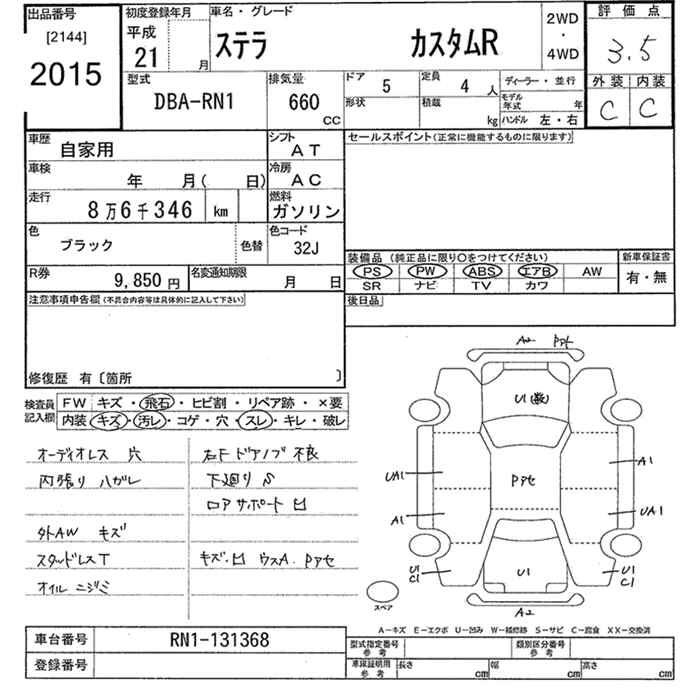 出品番号
[2144]
2015
初度登録年月
平成
21 月
車名・グレード
ステラ カスタムR
2WD
・
4WD
評価点
3.5
外装 内装
C C
型式
DBA-RN1
排気量
660
CC
ドア
5
定員
4 人
形状
積載
kg
ディーラー・並行
モデル
年式 年
ハンドル 左・右
車歴
自家用
シフト
AT
車検
年 月( 日)
冷房
AC
走行
8万6千346 km
燃料
ガソリン
色
ブラック
色替
色コード
32J
R券
9,850円
名変通知期限
月 日
セールスポイント(正常に機能するものに限ります)
装備品(純正品に限り○をつけてください)
新車保証書
PS PW ABS エアB AW
有・無
SR ナビ TV カワ
後日品
注意事項申告欄(不具合内容等は具体的に記入して下さい)
修復歴 有〔箇所 〕
検査員
記入欄
FW キズ・飛石・ヒビ割・リペア跡・×要
内装 キズ・汚レ・コゲ・穴・スレ・キレ・破レ
オーディオレス 穴
内張り ハガレ
外AW キズ
スタッドレスT
オイル ニジミ
右F ドアノブ 不良
下廻り S
ロアサポート 凹
キズ.凹 ウスA. Pアセ
A2 Pアセ
U1(数)
UA1
Pアセ
A1
A1
UA1
U1
C1
U1
U1
C1
スペア
A2
A-キズ E-エクボ U-凹み W-補修跡 S-サビ C-腐食 XX-交換済
車台番号
RN1-131368
登録番号
型式指定番号
参考
類別区分番号
参考
車庫証明用
参考
長さ cm
幅 cm
高さ cm